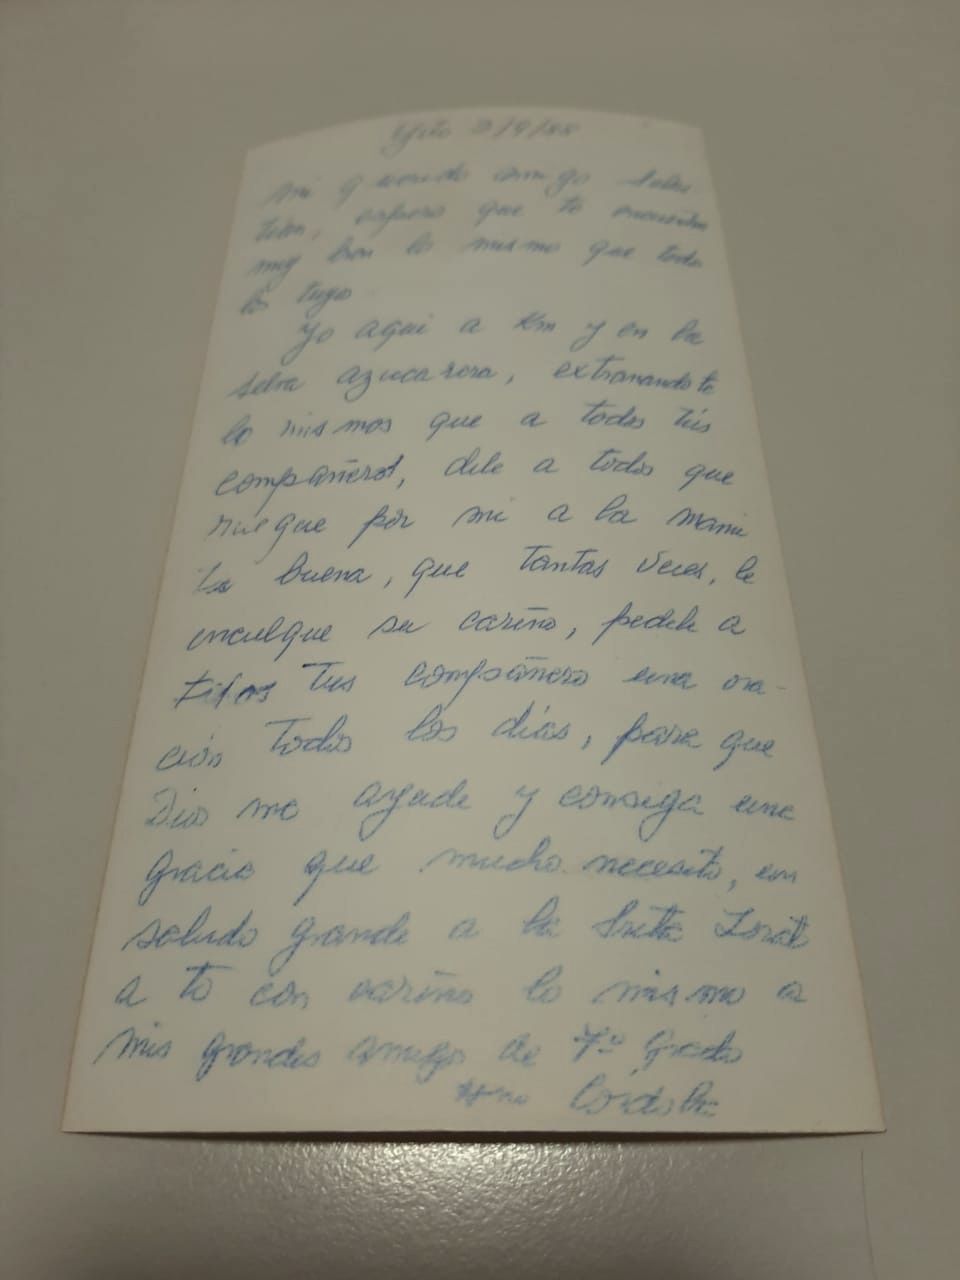 mi querido amigo Sebas
tian, espero que te encuentres
muy bien lo mismo que todo
los tuyo
Yo aqui a Km y en la
selva azucarera, extrañandote
lo mismos que a todos tús
compañeros, dile a todos que
ruegue por mi a la mami
ta buena, que tantas veces, le
inculque su cariño, pedile a
todos tus compañero una ora-
ción todos los días, para que
Dios me ayude y consiga una
gracia que mucho necesito, un
saludo grande a la Srita
a to con cariño lo mismo a
mis grandes amigo de 7º Grado
Hno Córdoba